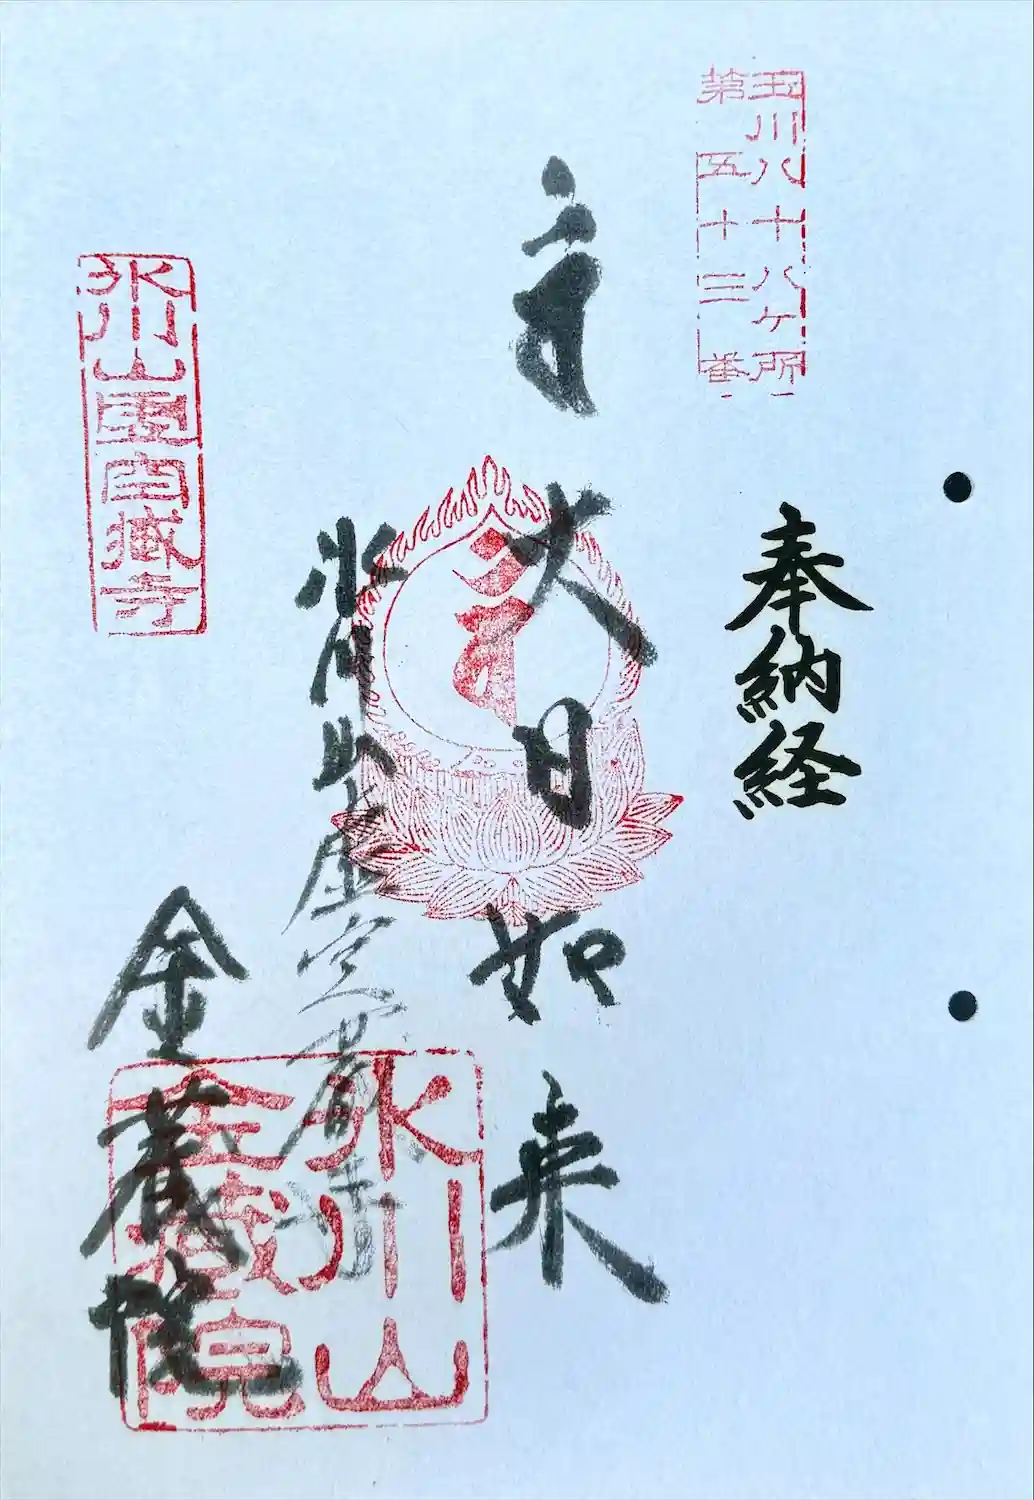 玉川八十八ヶ所
第五十三番
奉納経
大日如来
氷川山虚空蔵寺
金蔵院
氷川山
金蔵院
氷川山虚空蔵寺